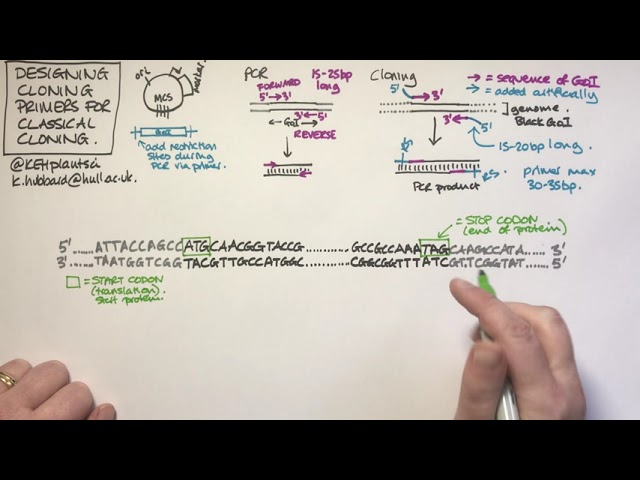 DESIGNING
CLONING
PRIMERS FOR
CLASSICAL
CLONING.
@KEHplantsci
k.hubbard@hull.ac.uk.
ori
marker
MCS
GoI
add restriction
sites during
PCR via primer.
PCR
FORWARD
5' 3'
15-25bp
long
3' 5'
GoI
REVERSE
Cloning
5' 3'
3' 5'
→ = sequence of GoI
→ = added artificially
genome.
Black GoI
15-20bp long.
primer max
30-35bp.
PCR product
= STOP CODON
(end of protein)
5' ......ATTACCAGCCATGCAACGGTACCG...........GCCGCCAAATAGCAAGCCATA...... 3'
3' ......TAATGGTCGGTACGTTGCCATGGC...........CGGCGGTTTATCGTTCGGTAT...... 5'
= START CODON
(translation).
start protein.